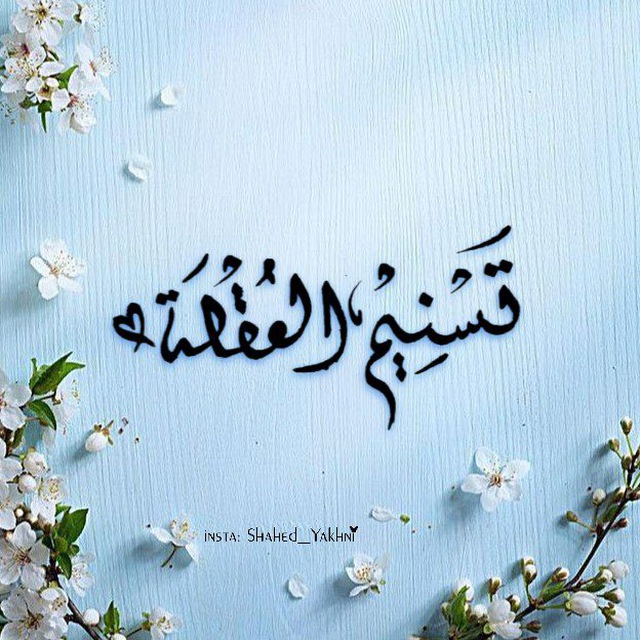 تَسْنِيمْ العُقْلَة
insta: Shahed_Yakhni